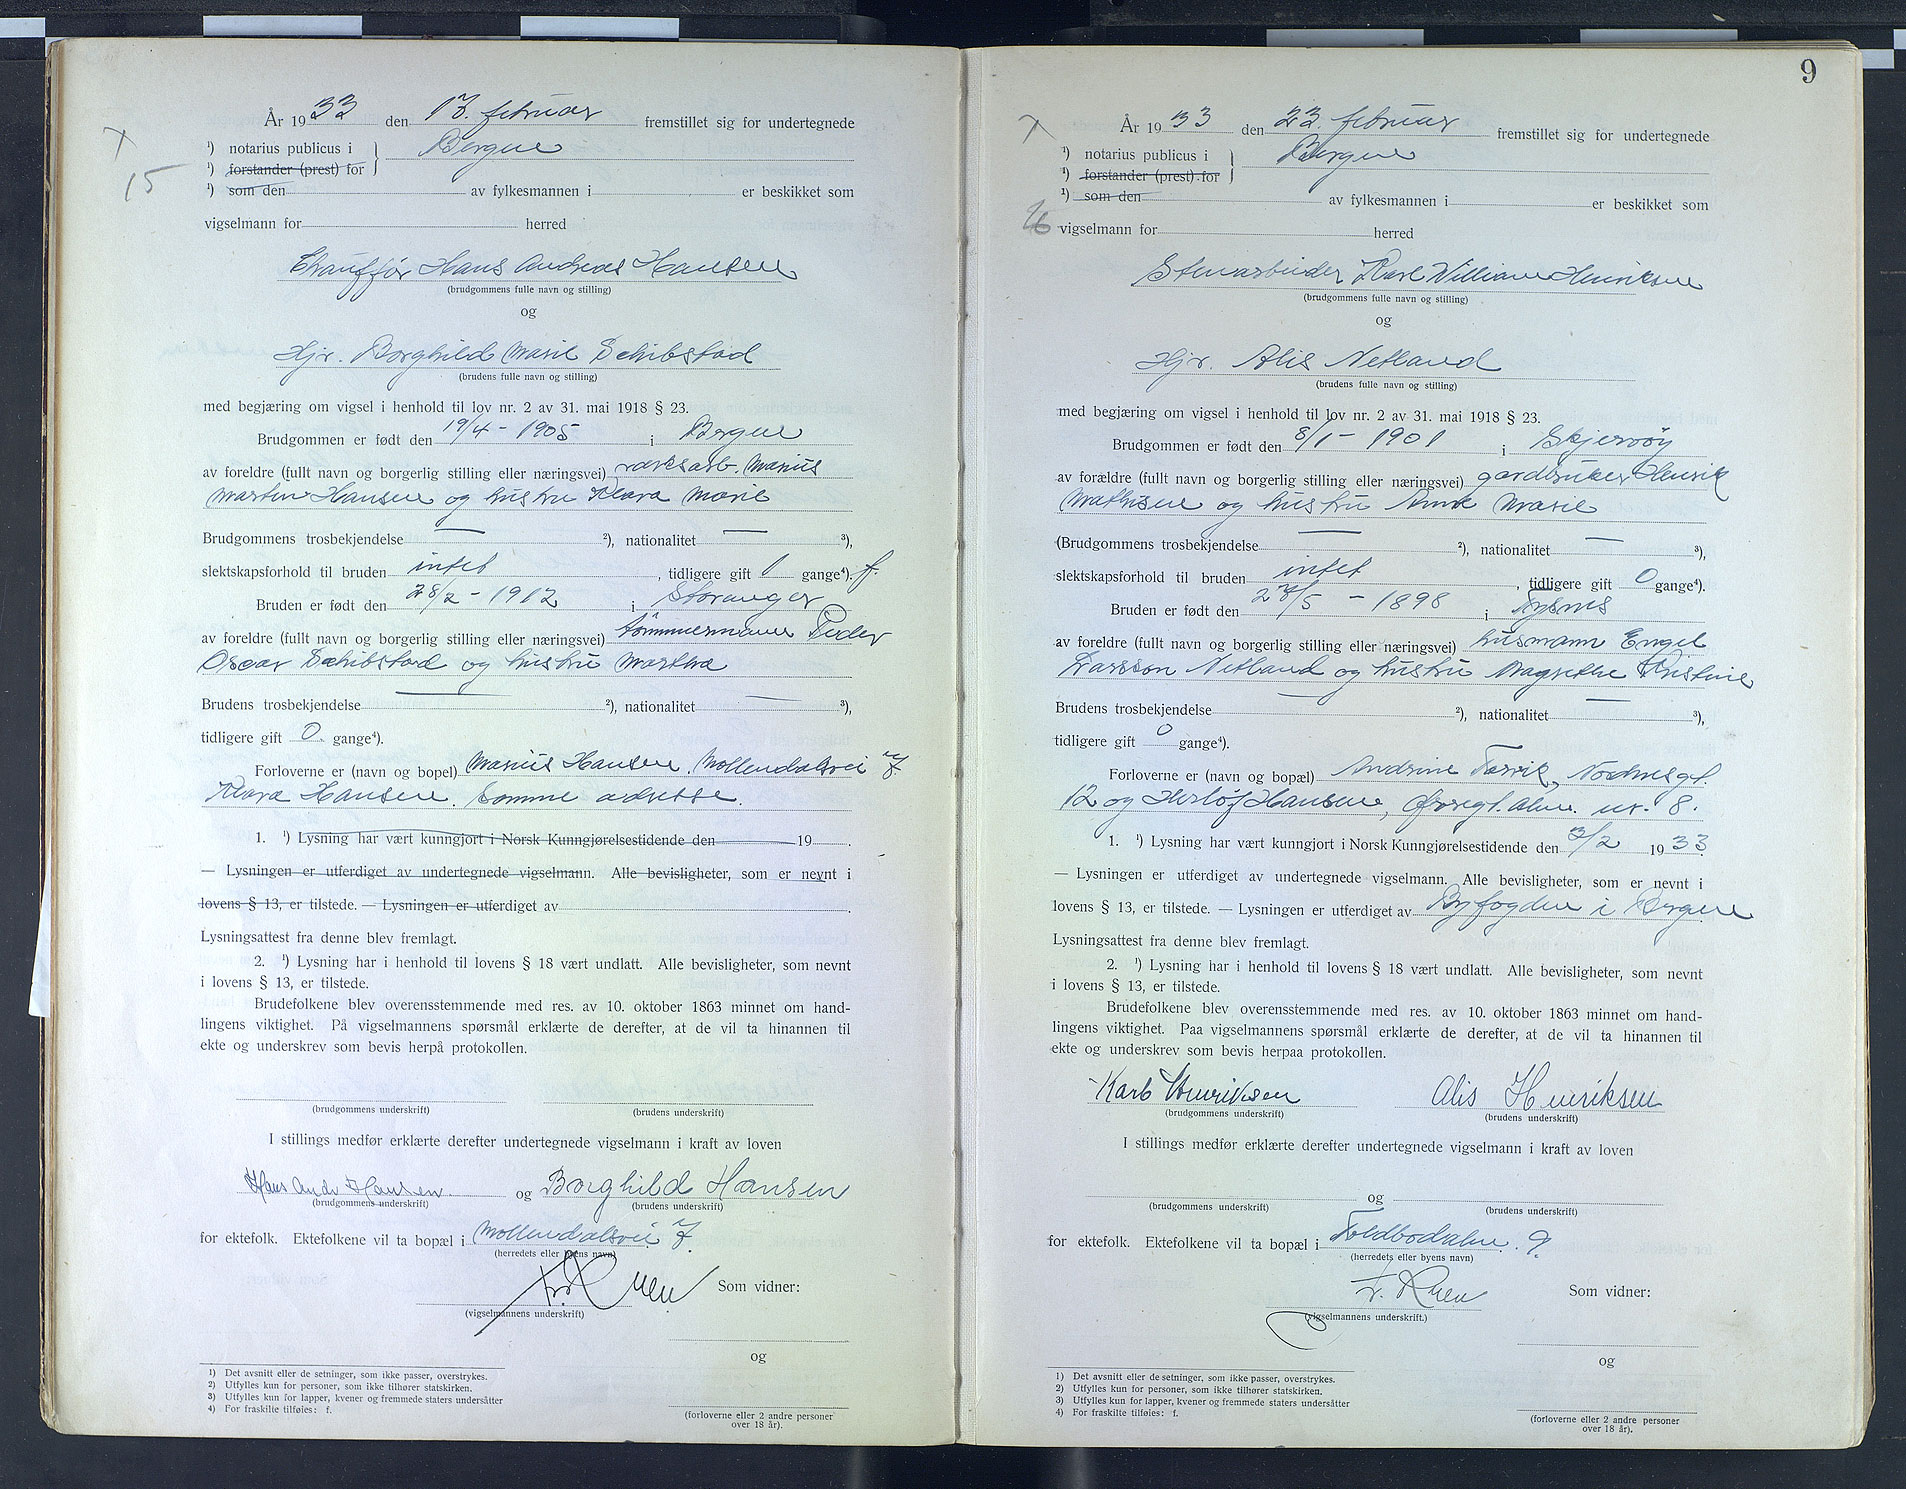 År 1933 den 17. februar fremstillet sig for undertegnede
¹) notarius publicus i Bergen
¹) forstander (prest) for
¹) som den av fylkesmannen i er beskikket som
15
vigselmann for herred
Chauffør Hans Andreas Hansen
(brudgommens fulle navn og stilling)
og
Hjv. Borghild Marie Schibstad
(brudens fulle navn og stilling)
med begjæring om vigsel i henhold til lov nr. 2 av 31. mai 1918 § 23.
Brudgommen er født den 19/4 - 1905 i Bergen
av foreldre (fullt navn og borgerlig stilling eller næringsvei) verksarb. Marius
Martin Hansen og hustru Klara Marie
Brudgommens trosbekjendelse — ²), nationalitet — ³),
slektskapsforhold til bruden intet, tidligere gift 1 gange⁴). f.
Bruden er født den 28/2 - 1912 i Stavanger
av foreldre (fullt navn og borgerlig stilling eller næringsvei) tømmermann Peder
Oscar Schibstad og hustru Martha
Brudens trosbekjendelse — ²), nationalitet — ³),
tidligere gift 0. gange⁴).
Forloverne er (navn og bopel) Marius Hansen. Møllendalsvei 7.
Klara Hansen. Samme adresse.
1. ¹) Lysning har vært kunngjort i Norsk Kunngjørelsestidende den 19 .
— Lysningen er utferdiget av undertegnede vigselmann. Alle bevisligheter, som er nevnt i
lovens § 13, er tilstede. — Lysningen er utferdiget av .
Lysningsattest fra denne blev fremlagt.
2. ¹) Lysning har i henhold til lovens § 18 vært undlatt. Alle bevisligheter, som nevnt
i lovens § 13, er tilstede.
Brudefolkene blev overensstemmende med res. av 10. oktober 1863 minnet om hand-
lingens viktighet. På vigselmannens spørsmål erklærte de derefter, at de vil ta hinannen til
ekte og underskrev som bevis herpå protokollen.
(brudgommens underskrift) (brudens underskrift)
I stillings medfør erklærte derefter undertegnede vigselmann i kraft av loven
Hans Andr Hansen og Borghild Hansen
(brudgommens underskrift) (brudens underskrift)
for ektefolk. Ektefolkene vil ta bopæl i Møllendalsvei 7.
(herredets eller byens navn)
Som vidner:
(vigselmannens underskrift)
og
¹) Det avsnitt eller de setninger, som ikke passer, overstrykes.
²) Utfylles kun for personer, som ikke tilhører statskirken.
³) Utfylles kun for lapper, kvener og fremmede staters undersåtter
⁴) For fraskilte tilføies: f.
(forloverne eller 2 andre personer
over 18 år).
9
År 1933 den 23. februar fremstillet sig for undertegnede
¹) notarius publicus i Bergen
¹) forstander (prest) for
¹) som den av fylkesmannen i er beskikket som
16
vigselmann for herred
Stenarbeider Karl William Henriksen
(brudgommens fulle navn og stilling)
og
Hjv. Alis Netland
(brudens fulle navn og stilling)
med begjæring om vigsel i henhold til lov nr. 2 av 31. mai 1918 § 23.
Brudgommen er født den 8/1 - 1901 i Skjervøy
av forældre (fullt navn og borgerlig stilling eller næringsvei) gardbruker Henrik
Mathisen og hustru Anne Marie
(Brudgommens trosbekjendelse — ²), nationalitet — ³),
slektskapsforhold til bruden intet, tidligere gift 0 gange⁴).
Bruden er født den 27/5 - 1898 i Tysnes
av foreldre (fullt navn og borgerlig stilling eller næringsvei) husmann Engel
Larsson Netland og hustru Magrethe Kristine
Brudens trosbekjendelse — ²), nationalitet — ³),
tidligere gift 0 gange⁴).
Forloverne er (navn og bopæl) Andrine Torvik, Nordnesgt.
12 og Herlof Hansen, Øvregt. alm. nr. 8.
1. ¹) Lysning har vært kunngjort i Norsk Kunngjørelsestidende den 3/2 1933
— Lysningen er utferdiget av undertegnede vigselmann. Alle bevisligheter, som er nevnt i
lovens § 13, er tilstede. — Lysningen er utferdiget av Byfogden i Bergen
Lysningsattest fra denne blev fremlagt.
2. ¹) Lysning har i henhold til lovens § 18 vært undlatt. Alle bevisligheter, som nevnt
i lovens § 13, er tilstede.
Brudefolkene blev overensstemmende med res. av 10. oktober 1863 minnet om hand-
lingens viktighet. Paa vigselmannens spørsmål erklærte de derefter, at de vil ta hinannen til
ekte og underskrev som bevis herpaa protokollen.
Karl Henriksen Alis Henriksen
(brudgommens underskrift) (brudens underskrift)
I stillings medfør erklærte derefter undertegnede vigselmann i kraft av loven
og
(brudgommens underskrift) (brudens underskrift)
for ektefolk. Ektefolkene vil ta bopæl i Toldbodalm. 9.
(herredets eller byens navn)
Som vidner:
(vigselmannens underskrift.)
og
¹) Det avsnitt eller de setninger, som ikke passer, overstrykes.
²) Utfylles kun for personer, som ikke tilhører statskirken.
³) Utfylles kun for lapper, kvener og fremmede staters undersåtter
⁴) For fraskilte tilføies: f.
(forloverne eller 2 andre personer
over 18 år).